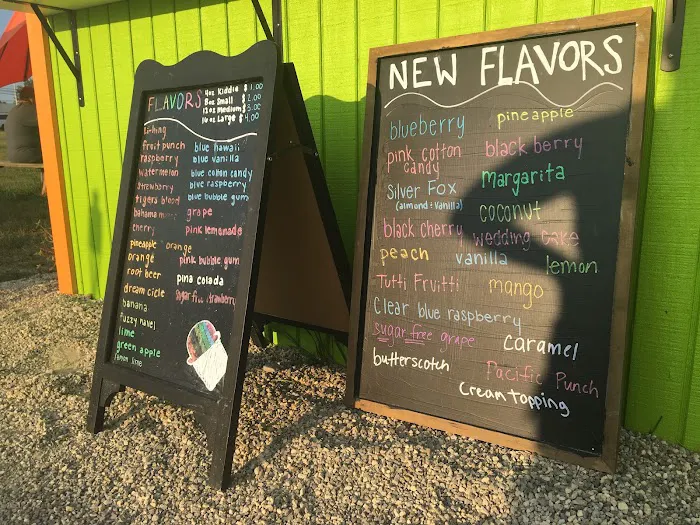 FLAVORS
4oz Kiddie $1.00
8oz Small $2.00
12oz Medium $3.00
16oz Large $4.00
fruit punch
raspberry
watermelon
strawberry
tigers blood
bahama
cherry
pineapple
orange
root beer
dreamcicle
banana
fuzzy navel
lime
green apple
lemon lime
blue hawaii
blue vanilla
blue cotton candy
blue raspberry
blue bubble gum
grape
pink lemonade
orange
pink bubble gum
pina colada
sugar free strawberry
NEW FLAVORS
blueberry
pink cotton
candy
Silver Fox
(almond + vanilla)
black cherry
peach
Tutti Fruitti
Clear blue raspberry
sugar free grape
butterscotch
pineapple
blackberry
Margarita
coconut
wedding cake
vanilla
lemon
mango
caramel
Pacific Punch
Cream topping